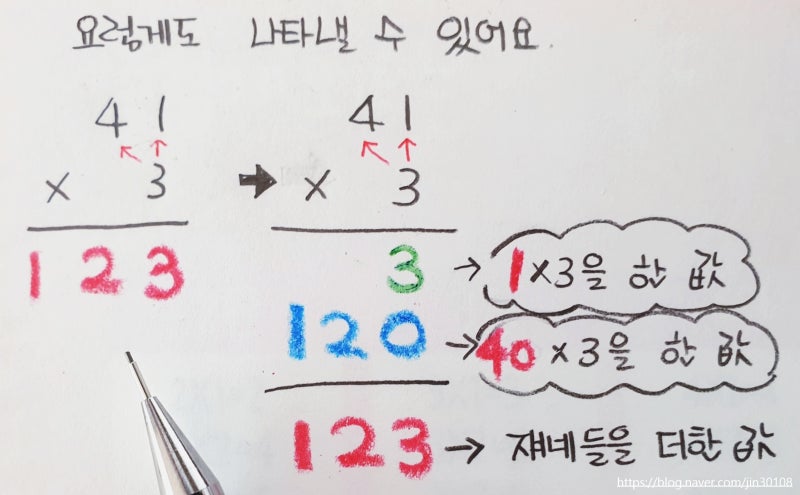 요렇게도 나타낼 수 있어요.
41
× 3
123
→
41
× 3
3 → 1×3을 한 값
120 → 40×3을 한 값
123 → 쟤네들을 더한 값
https://blog.naver.com/jin30108